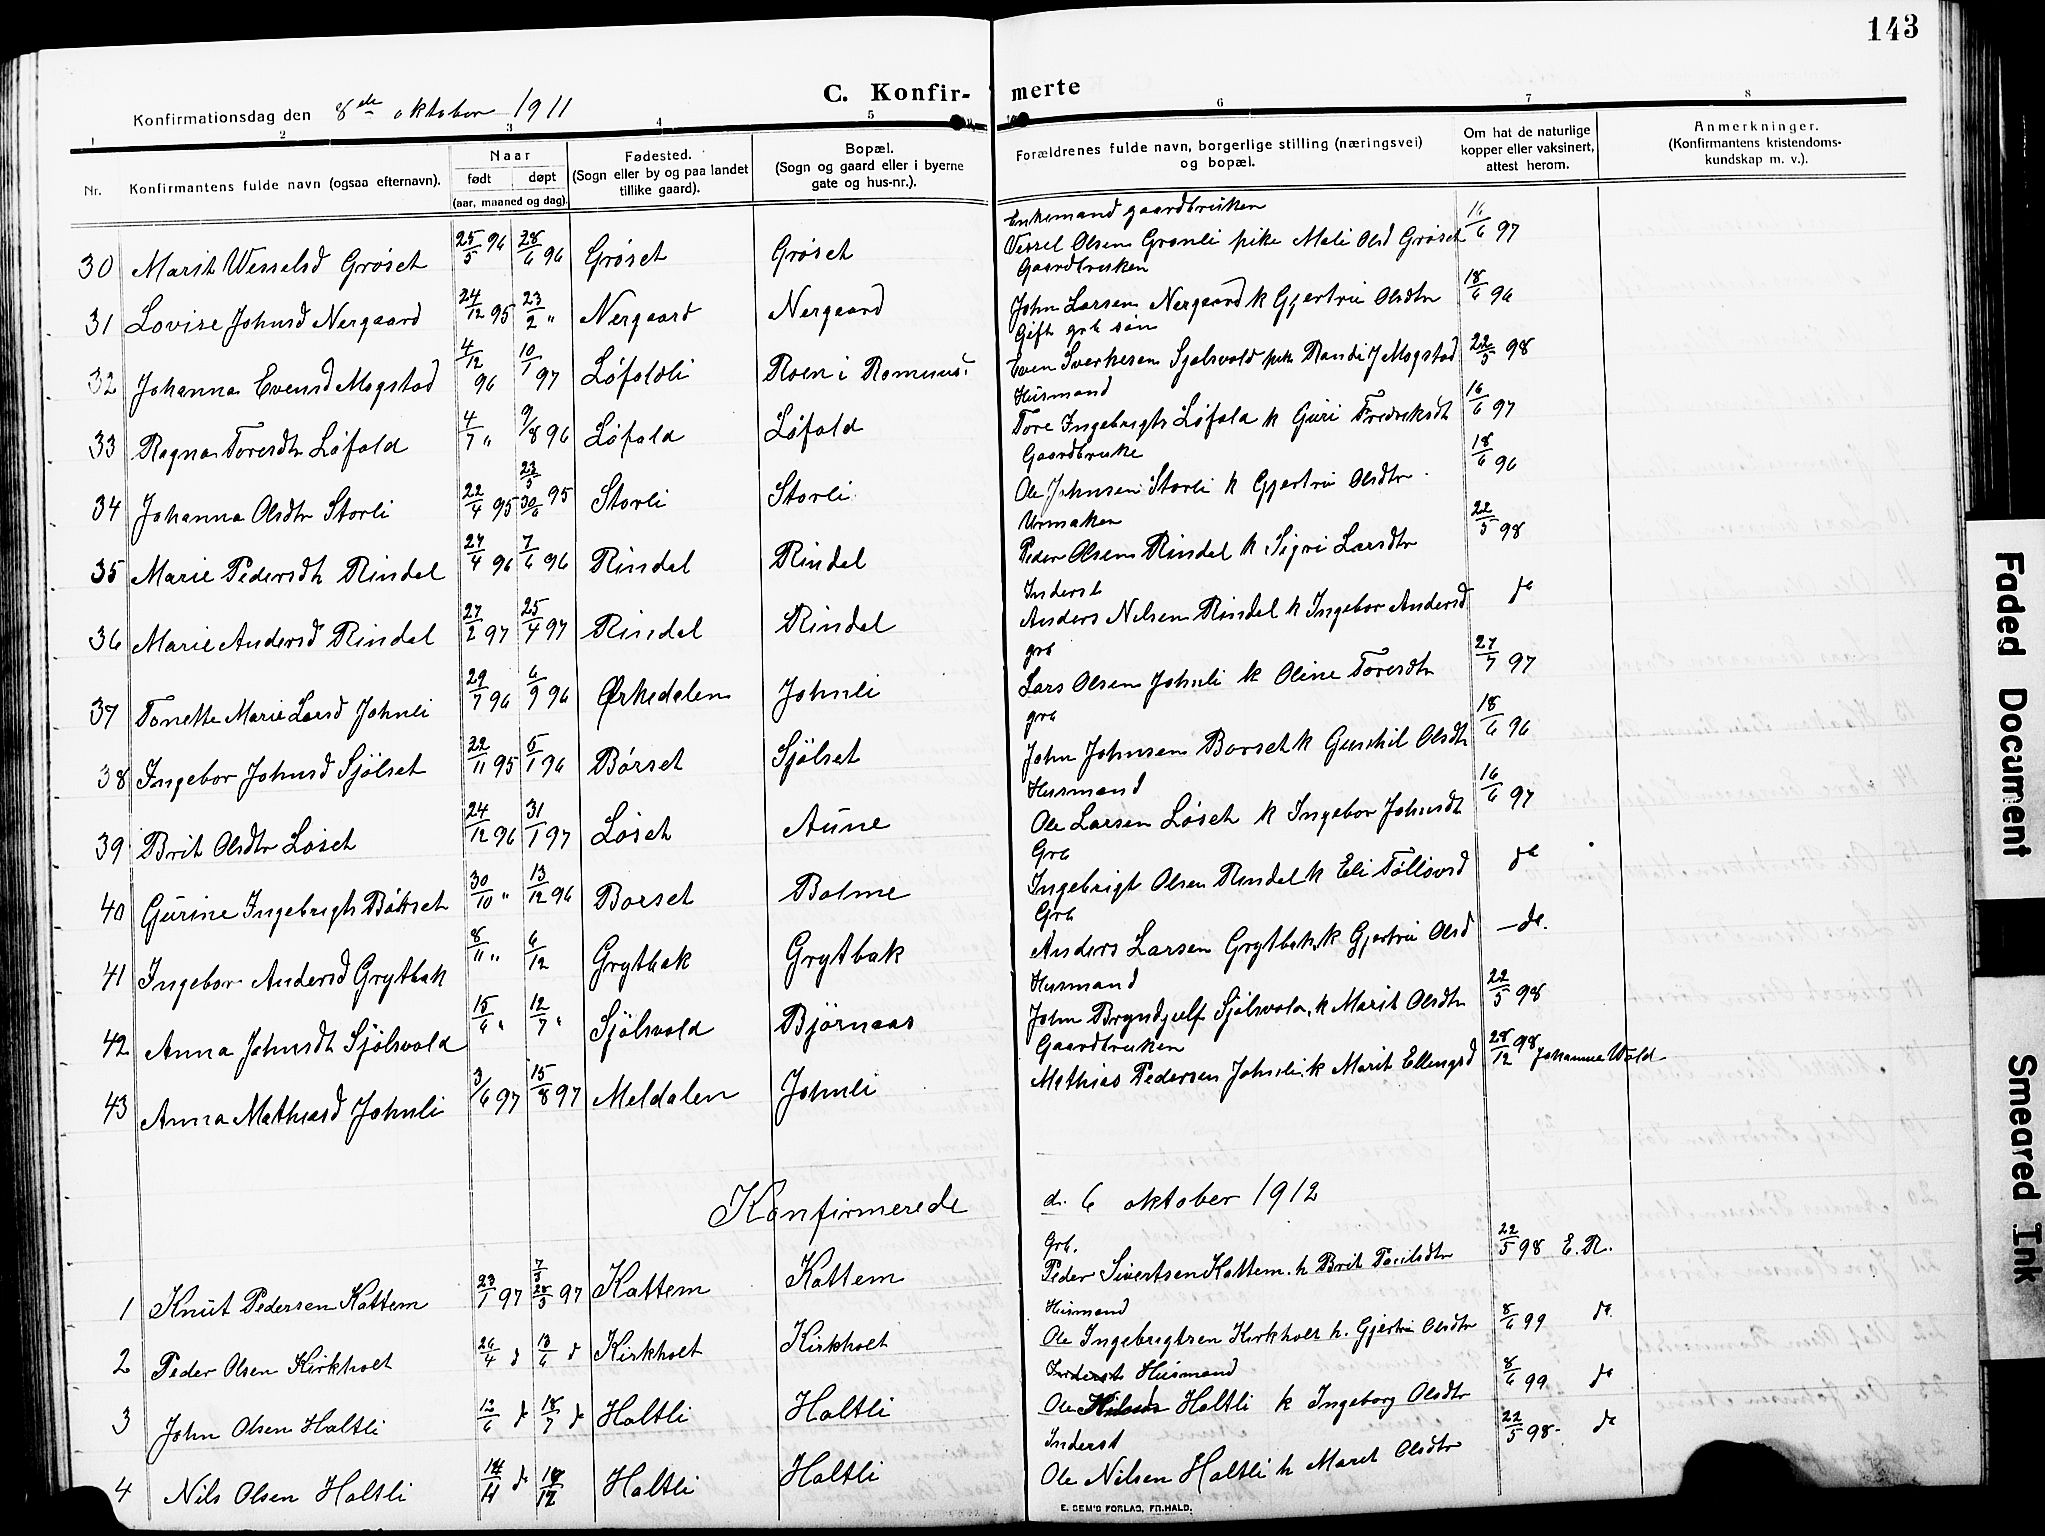 143
C. Konfir- merte
Konfirmationsdag den 8de oktober 1911
1 2 3 4 5 6 7 8
Nr. Konfirmantens fulde navn (ogsaa efternavn). Naar født døpt (aar, maaned og dag). Fødested. (Sogn eller by og paa landet tillike gaard). Bopæl. (Sogn og gaard eller i byerne gate og hus-nr.). Forældrenes fulde navn, borgerlige stilling (næringsvei) og bopæl. Om hat de naturlige kopper eller vaksinert, attest herom. Anmerkninger. (Konfirmantens kristendoms-kundskap m. v.).
Enkemand gaardbruker
30 Marit Wesselsd Grøset 25/5 96 28/6 96 Grøset Grøset Vessel Olsen Grønli pike Mali Olsd Grøset 16/6 97
Gaardbruker
31 Lovise Johnsd Nergaard 24/12 95 23/2 " Nergaard Nergaard John Larsen Nergaard k Gjertru Olsdtr 18/6 96
Gift grb søn
32 Johanna Evensd Mogstad 4/12 96 10/1 97 Løfaldli Roen i Romuns: Even Sverkesen Sjølsvold pike Randi J Mogstad 22/5 98
Husmand
33 Ragna Toresdtr Løfald 4/7 " 9/8 96 Løfald Løfald Tore Ingebrigts Løfald k Guri Fredriksdt 16/6 97
Gaardbruke
34 Johanna Olsdtr Storli 22/4 95 23/5 30/6 95 Storli Storli Ole Johnsen Storli k Gjertru Olsdtr 18/6 96
Urmaker
35 Marie Pedersdt Rindal 27/4 96 7/6 96 Rindal Rindal Peder Olsen Rindal k Sigri Larsdtr 22/5 98
Inderst
36 Marie Andersd Rindal 27/2 97 25/4 97 Rindal Rindal Anders Nilsen Rindal k Ingebor Andersd do
grb
37 Tonette Marie Larsd Johnli 29/7 96 6/9 96 Ørkedalen Johnli Lars Olsen Johnli k Oline Toresdtr 27/7 97
grb
38 Ingebor Johnsd Sjölset 22/11 95 5/1 96 Børset Sjölset John Johnsen Børset k Gunhil Olsdt 18/6 96
Husmand
39 Brit Olsdtr Løset 24/12 96 31/1 97 Løset Aune Ole Larsen Løset k Ingebor Johnsdt 16/6 97
Grb
40 Gurine Ingebrigts Børset 30/10 " 13/12 96 Børset Bolme Ingebrigt Olsen Rindal k Eli Tøllovsd do
Grb
41 Ingebor Andersd Grytbak 8/11 " 6/12 Grytbak Grytbak Anders Larsen Grytbak k Gjertru Olsd — do.
Husmand
42 Anna Johnsdt Sjölsvold 15/6 " 12/7 " Sjölsvold Björnaas John Bryndjulf Sjölsvold k Marit Olsdtr 22/5 98
Gaardbruker
43 Anna Mathiasd Johnli 3/6 97 15/8 97 Meldalen Johnli Mathias Pedersen Johnli k Marit Ellingsd 28/12 98 Johanna Wold
Konfirmerede d. 6 oktober 1912
Grb.
1 Knut Pedersen Kattem 23/1 97 7/3 28/5 97 Kattem Kattem Peder Sivertsen Kattem k Brit Poulsdtr 22/5 98 E. R.
Husmand
2 Peder Olsen Kirkholt 26/4 d 13/6 d Kirkholt Kirkholt Ole Ingebrigtsen Kirkholt k. Gjertru Olsdtr 8/6 99 do
Inderst Husmand
3 John Olsen Haltli 12/6 d 18/7 d Haltli Haltli Ole Haltli k Ingeborg Olsdtr 8/6 99 do
Inderst
4 Nils Olsen Haltli 14/11 d 12 Haltli Haltli Ole Nilsen Haltli k Maret Olsdtr 22/5 98- do
E. SEM'S FORLAG, FR.HALD.
Faded Document
Smeared Ink